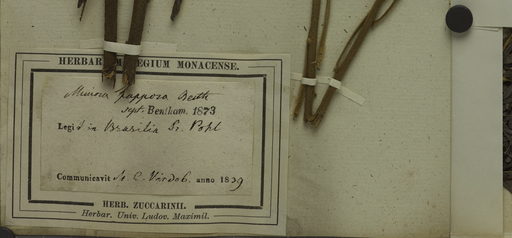 HERBAR. REGIUM MONACENSE.
Mimosa papposa Benth
sept. Bentham. 1873
Legit in Brasilia Dr. Pohl
Communicavit anno 1839
HERB. ZUCCARINII.
Herbar. Univ. Ludov. Maximil.